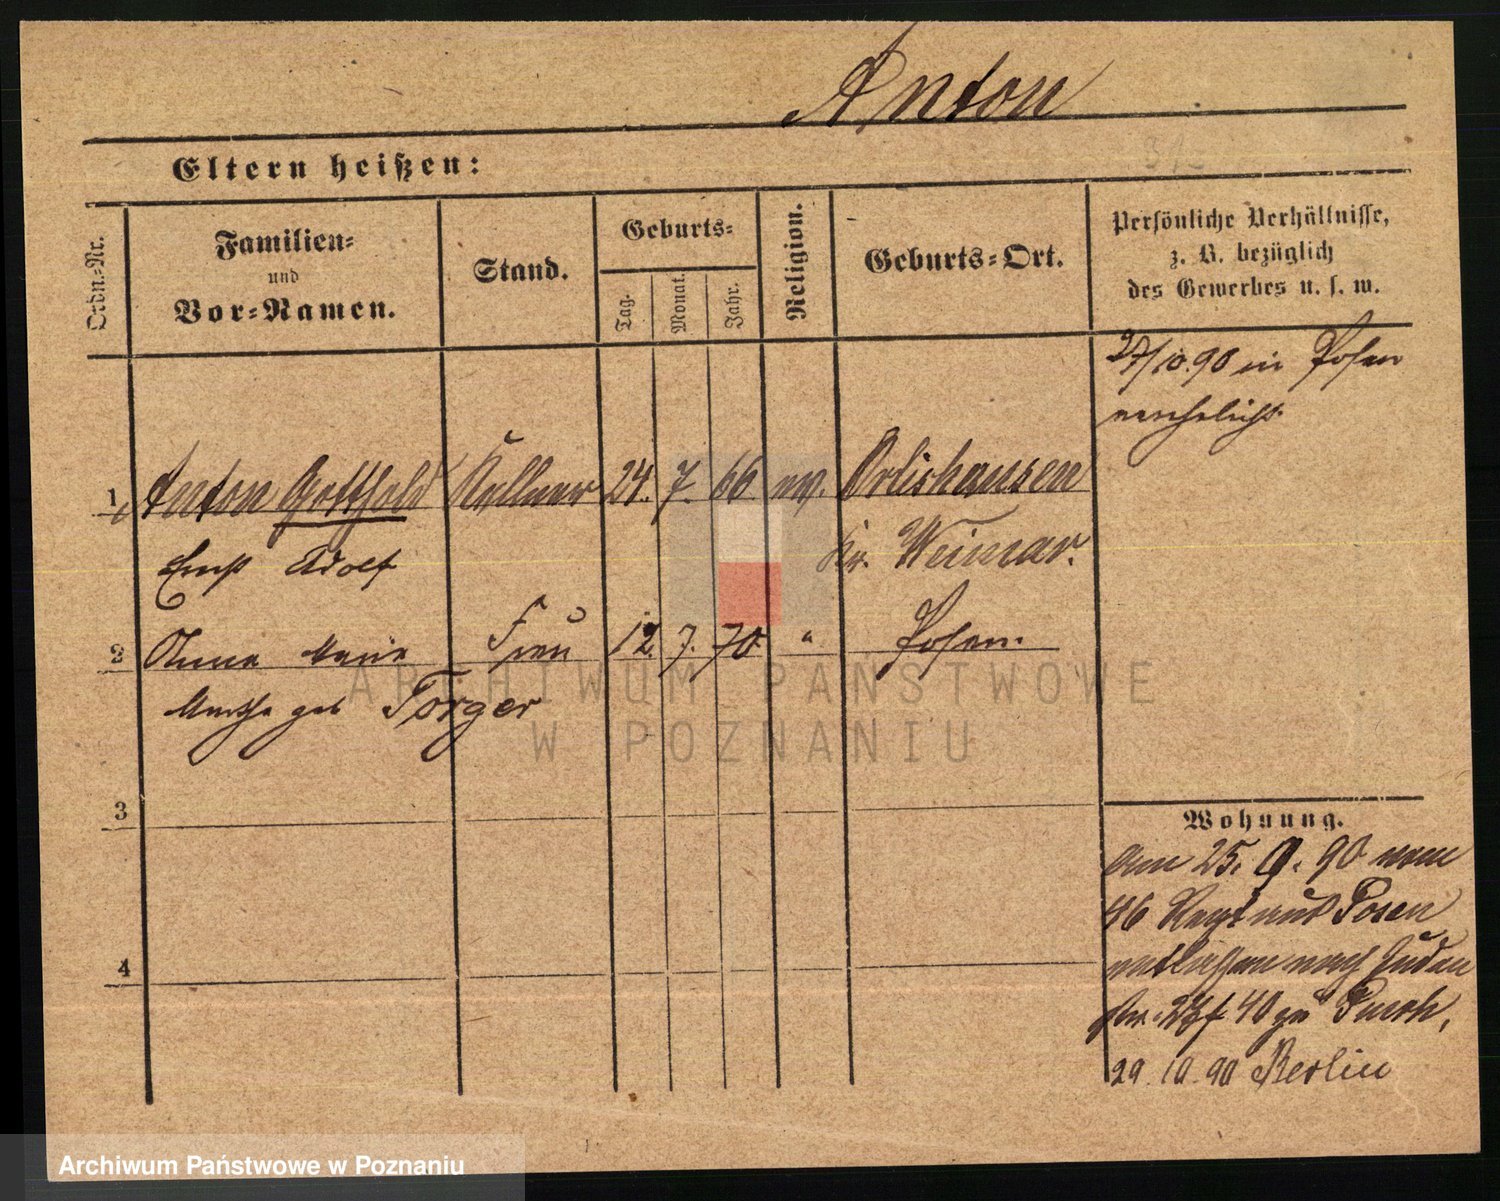 Anton
Eltern heißen:
Ordn=Nr.
Familien=
und
Vor=Namen.
Stand.
Geburts=
Tag.
Monat.
Jahr.
Religion.
Geburts=Ort.
Persönliche Verhältnisse,
z. B. bezüglich
des Gewerbes u. s. w.
27/10.90 in Posen
verehelicht
1 Anton Gotthold Kellner 24. 7. 66 ev. Orlishausen
Ernst Adolf Kr. Weimar.
2 Anna Maria Frau 12. 7. 70 " Posen.
Martha geb Torger
3
4
Wohnung.
Am 25. 9. 90 vom
46 Regt aus Posen
entlassen nach Juden
str. 27 40 zu
29. 10. 90 Berlin
ARCHIWUM PAŃSTWOWE
W POZNANIU
Archiwum Państwowe w Poznaniu